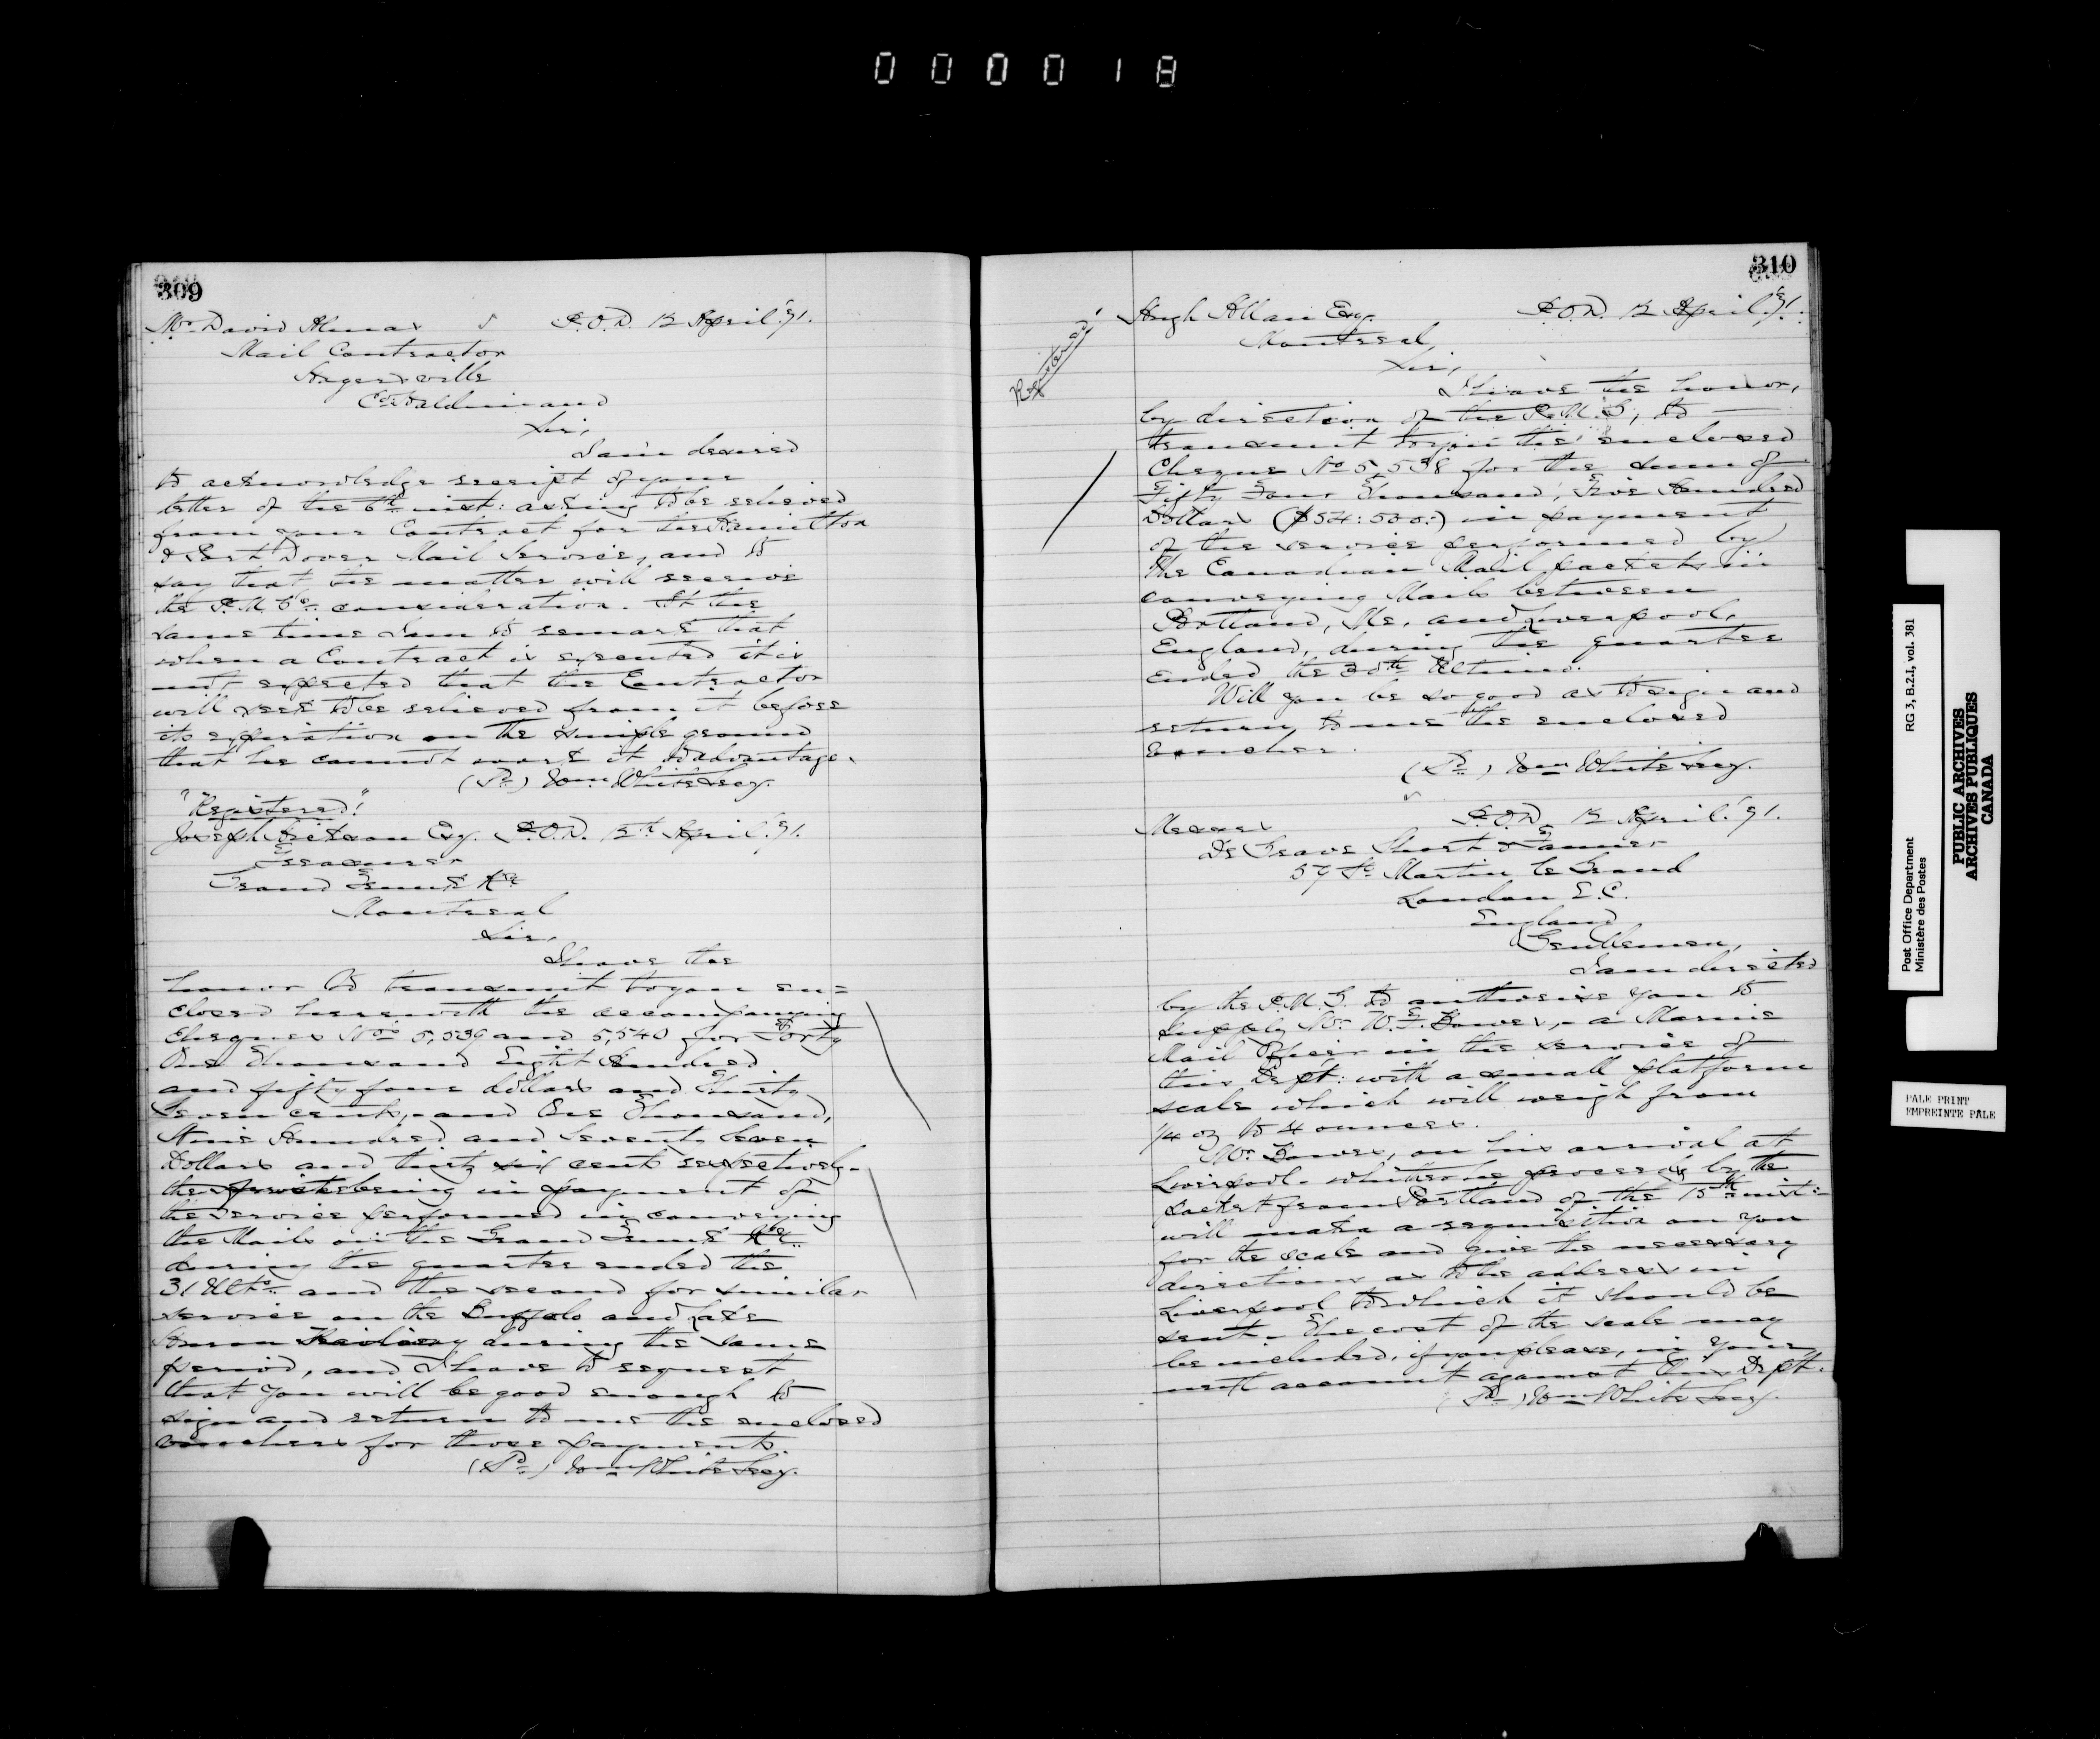 000018
309
Mr. David Almas P.O.D. 12 April '71.
Mail Contractor
Hagersville
Co. Haldimand
Sir,
I am desired
to acknowledge receipt of your
letter of the 6th inst: asking to be relieved
from your Contract for the Hamilton
& Port Dover Mail Service, and to
say that the matter will receive
the P.M.G's consideration. At the
same time I am to remark that
when a Contract is executed it is
not expected that the Contractor
will seek to be relieved from it before
its expiration on the simple ground
that he cannot work it to advantage.
(Sd.) Wm. White Secy.
"Registered"
Joseph Hickson Esq. P.O.D. 12th April '71.
Treasurer
Grand Trunk Ry
Montreal
Sir,
I have the
honor to transmit to you en=
closed herewith the accompanying
Cheques Nos 5,539 and 5,540 for Forty
One Thousand Eight Hundred
and fifty four dollars and Thirty
Seven cents,- and One Thousand,
Nine Hundred and Seventy Seven
Dollars and thirty six cents respectively-
the first being in payment of
the service performed in conveying
the Mails on the Grand Trunk Ry.
during the quarter ended the
31 Ulto. and the second for similar
service on the Buffalo and Lake
Huron Railway during the same
period, and I have to request
that you will be good enough to
sign and return to me the enclosed
vouchers for those payments.
(Sd.) Wm White Secy.
310
Registered
Hugh Allan Esq. P.O.D. 12 April '71.
Montreal
Sir,
I have the honor,
by direction of the P.M.G, to
transmit to you the enclosed
Cheque No 5,538 for the sum of
Fifty Four Thousand, Five Hundred
Dollars ($54:500:) in payment
of the service performed by
the Canadian Mail packets in
conveying Mails between
Portland, Me, and Liverpool,
England, during the quarter
ended the 30th Ultimo.
Will you be so good as to sign and
return to me the enclosed
voucher.
(Sd.) Wm White Secy.
Messrs P.O.D. 12 April '71.
De Grave Short & Fanner
59 St Martin le Grand
London E.C.
England
Gentlemen,
I am directed
by the P.M.G. to authorise you to
supply Mr W.F. Bowes,- a Marine
Mail Officer in the service of
this Dept: with a small platform
scale which will weigh from
1/4 oz to 4 ounces.
Mr Bowes, on his arrival at
Liverpool- whither he proceeds by the
packet from Portland of the 15th inst:-
will make a requisition on you
for the scale and give the necessary
directions as to the address in
Liverpool to which it should be
sent.- The cost of the scale may
be included, if you please, in your
next account against this Dept.
(Sd.) Wm White Secy.
Post Office Department
Ministère des Postes
RG 3, B.2.1, vol. 381
PUBLIC ARCHIVES
ARCHIVES PUBLIQUES
CANADA
PALE PRINT
EMPREINTE PALE